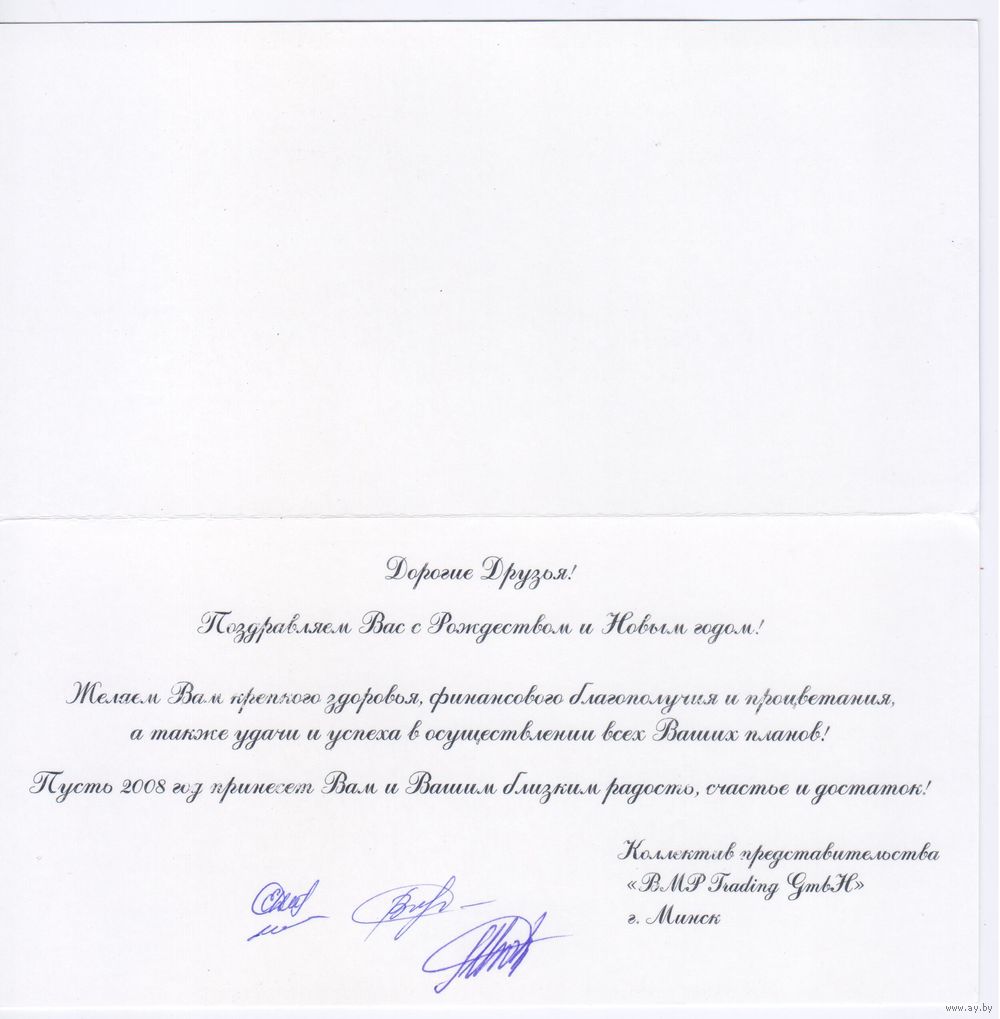 Дорогие Друзья!
Поздравляем Вас с Рождеством и Новым годом!
Желаем Вам крепкого здоровья, финансового благополучия и процветания,
а также удачи и успеха в осуществлении всех Ваших планов!
Пусть 2008 год принесет Вам и Вашим близким радость, счастье и достаток!
Коллектив представительства
«BMP Trading GmbH»
г. Минск
www.ay.by